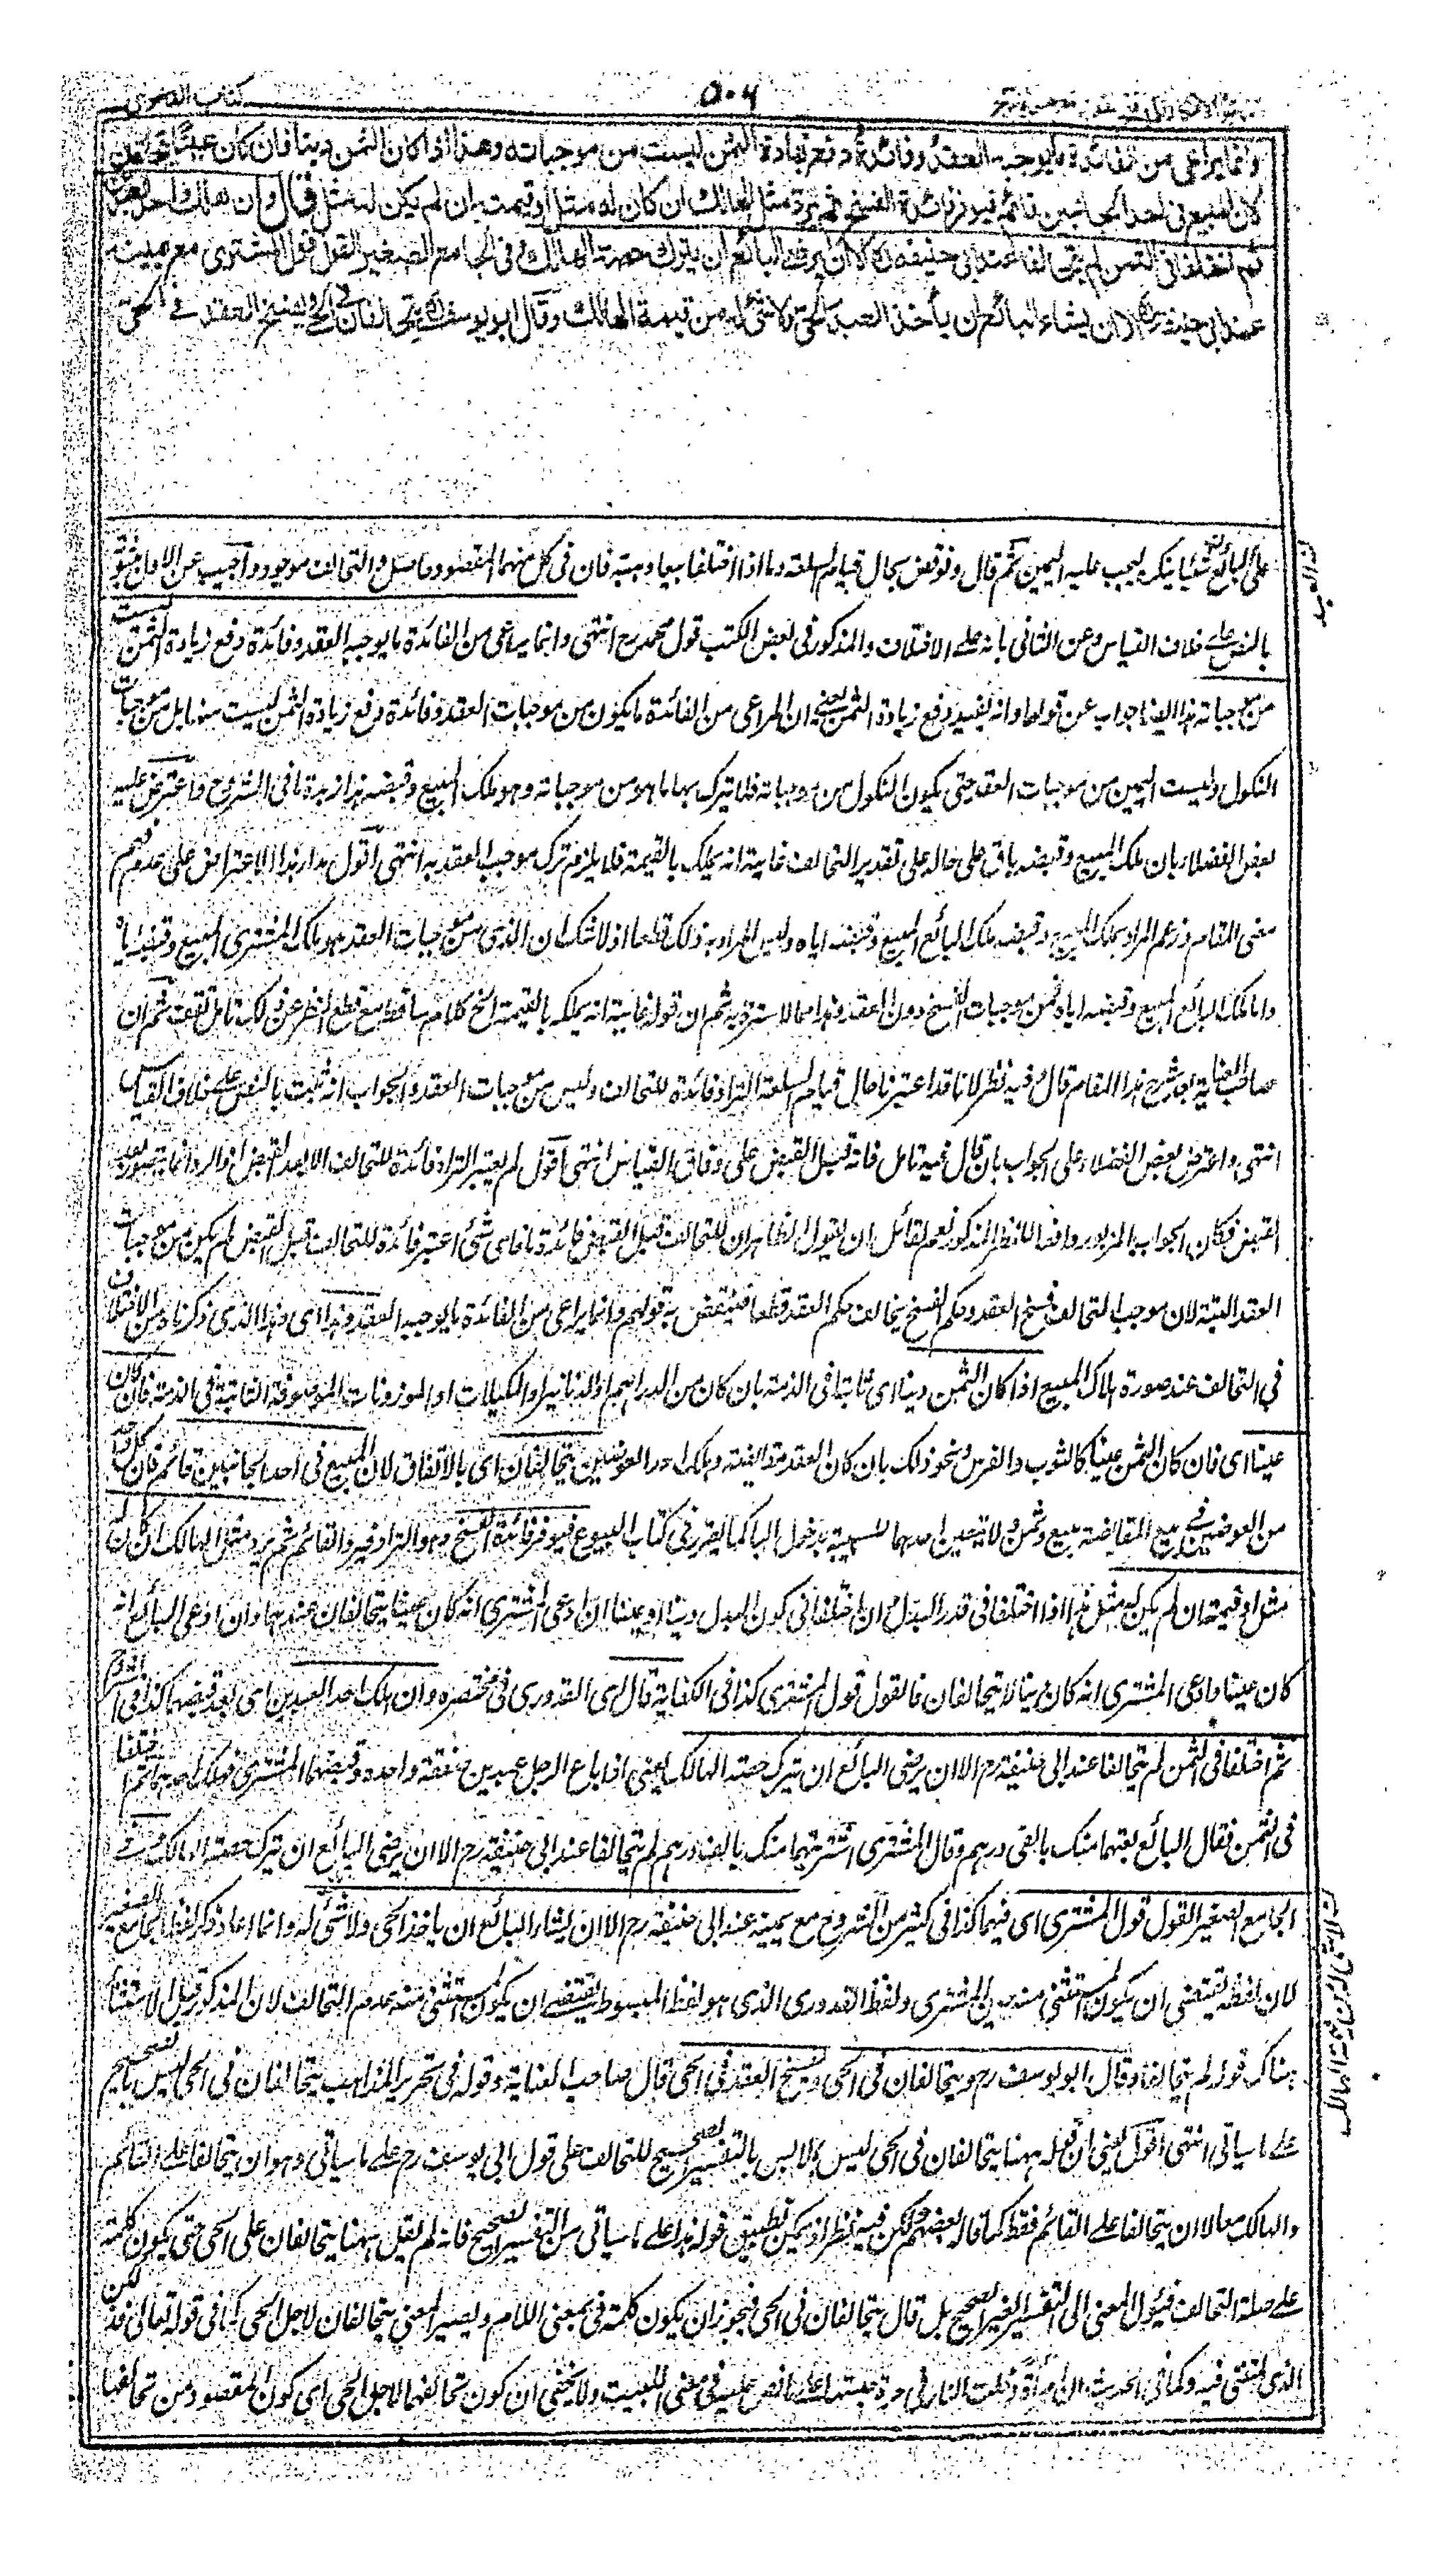 كتاب الدعوى
٥٠٦
وانما يراعى من الفائدة ما يوجبه العقد وفائدة دفع زيادة الثمن ليست من موجباته وهذا اذا كان الثمن دينا فان كان عينا يتحالفان
لان المبيع فى احد الجانبين قائم فيوفر فائدة الفسخ ثم يرد مثل الهالك ان كان له مثل او قيمته ان لم يكن له مثل قال وان هلك احد العبدين
ثم اختلفا فى الثمن لم يتحالفا عند ابى حنيفة رح الا ان يرضى البائع ان يترك حصة الهالك وفى الجامع الصغير القول قول المشترى مع يمينه
عند ابى حنيفة رح الا ان يشاء البائع ان يأخذ العبد الحى ولا شئ له من قيمة الهالك وقال ابو يوسف رح يتحالفان فى الحى ويفسخ العقد فى الحى
على البائع شيئا ينكره ليجب عليه اليمين ثم قال ونوقض بحال قيام السلعة وبما اذا اختلفا بيعا وهبة فان فى كل منهما المقصود حاصل والتحالف موجود واجيب عن الاول بثبوته
بالنص على خلاف القياس وعن الثانى بانه على الاختلاف والمذكور فى بعض الكتب قول محمد رح انتهى وانما يراعى من الفائدة ما يوجبه العقد وفائدة دفع زيادة الثمن ليست
من موجباته هذا ايضا جواب عن قولهما وانه يفيد دفع زيادة الثمن يعنى ان المراعى من الفائدة ما يكون من موجبات العقد وفائدة دفع زيادة الثمن ليست منها بل من موجبات
النكول وليست اليمين من موجبات العقد حتى يكون النكول من موجباته فلا يترك بها ما هو من موجباته وهو ملك المبيع وقبضه هذا زبدة ما فى الشروح واعترض عليه
بعض الفضلاء بان ملك المبيع وقبضه باق على حاله على تقدير التحالف غايته انه يملك بالقيمة فلا يلزم ترك موجب العقد به انتهى اقول مدار هذا الاعتراض على عدم فهم
معنى المقام وزعم المراد بملك المبيع وقبضه ملك البائع المبيع وقبضه اياه وليس المراد به ذلك قطعا اذ لا شك ان الذى من موجبات العقد هو ملك المشترى المبيع وقبضه اياه
واما ملك البائع المبيع وقبضه اياه فمن موجبات الفسخ دون العقد وهذا مما لا سترة به ثم ان قوله غايته انه يملكه بالقيمة الخ كلام ساقط مع قطع النظر عن ذلك تأمل تقف ثم ان
صاحب العناية بعد شرح هذا المقام قال وفيه نظر لانا قد اعتبرنا حال قيام السلعة التراد فائدة للتحالف وليس من موجبات العقد والجواب انه ثبت بالنص على خلاف القياس
انتهى واعترض بعض الفضلاء على الجواب بان قال فيه تأمل فانه قبل القبض على وفاق القياس انتهى اقول لم يعتبر التراد فائدة للتحالف الا بعد القبض اذ الرد انما يتصور بعد
القبض فكان الجواب المزبور دافعا للنظر المذكور نعم لقائل ان يقول الظاهر ان للتحالف قبل القبض فائدة ما فاى شئ اعتبر فائدة للتحالف قبل القبض لم يكن من موجبات
العقد البتة لان موجب التحالف فسخ العقد وحكم الفسخ يخالف حكم العقد قطعا فينتقض به قولهم وانما يراعى من الفائدة ما يوجبه العقد وهذا اى هذا الذى ذكرناه من الاختلاف
فى التحالف عند صورة هلاك المبيع اذا كان الثمن دينا اى ثابتا فى الذمة بان كان من الدراهم او الدنانير او المكيلات او الموزونات الموصوفة الثابتة فى الذمة فان كان
عينا اى فان كان الثمن عينا كالثوب والفرس ونحو ذلك بان كان العقد مقايضة وهلك احد العوضين يتحالفان اى بالاتفاق لان المبيع فى احد الجانبين قائم فان كل واحد
من العوضين فى بيع المقايضة مبيع وثمن ولا يتعين احدهما للثمنية بدخول الباء كما تقرر فى كتاب البيوع فيوفر فائدة الفسخ وهو التراد فيرد القائم ثم يرد مثل الهالك ان كان له
مثل او قيمته ان لم يكن له مثل هذا اذا اختلفا فى قدر البدل وان اختلفا فى كون البدل دينا او عينا ان ادعى المشترى انه كان عينا يتحالفان عندهما وان ادعى البائع انه
كان عينا وادعى المشترى انه كان دينا لا يتحالفان فالقول قول المشترى كذا فى الكفاية قال اى القدورى فى مختصره وان هلك احد العبدين اى بعد قبضهما كذا فى الشروح
ثم اختلفا فى الثمن لم يتحالفا عند ابى حنيفة رح الا ان يرضى البائع ان يترك حصة الهالك يعنى اذا باع الرجل عبدين صفقة واحدة وقبضهما المشترى فهلك احدهما ثم اختلفا
فى الثمن فقال البائع بعتهما منك بالفى درهم وقال المشترى اشتريتهما منك بالف درهم لم يتحالفا عند ابى حنيفة رح الا ان يرضى البائع ان يترك حصة الهالك وفى
الجامع الصغير القول قول المشترى اى فيهما كذا فى كثير من الشروح مع يمينه عند ابى حنيفة رح الا ان يشاء البائع ان يأخذ الحى ولا شئ له وانما اعاد ذكر لفظ الجامع الصغير
لان لفظه يقتضى ان يكون المستثنى منه يمين المشترى ولفظ القدورى الذى هو لفظ المبسوط يقتضى ان يكون المستثنى منه عدم التحالف لان المذكور قبل الاستثناء
هناك قوله لم يتحالفا وقال ابو يوسف رح يتحالفان فى الحى ويفسخ العقد فى الحى قال صاحب العناية وقوله فى تحرير المذاهب يتحالفان فى الحى ليس بصحيح
على ما سياتى انتهى اقول يعنى ان قوله ههنا يتحالفان فى الحى ليس بملابس بالتفسير الصحيح للتحالف على قول ابى يوسف رح على ما سياتى وهو ان يتحالفا على القائم
والهالك معا لا ان يتحالفا على القائم فقط كما قاله بعضهم لكن فيه نظر اذ يمكن تطبيق قوله هذا على ما سياتى من التفسير الصحيح فانه لم يقل ههنا يتحالفان على الحى حتى يكون كلمة
على صلة التحالف فيئول المعنى الى التفسير الغير الصحيح بل قال يتحالفان فى الحى فيجوز ان يكون كلمة فى بمعنى اللام ويصير المعنى يتحالفان لاجل الحى كما فى قوله تعالى فذلكن
الذى لمتننى فيه وكما فى الحديث ان امرأة دخلت النار فى هرة حبستها على ما نص عليه فى مغنى اللبيب ولا يخفى ان كون تحالفهما لاجل الحى اى كون المقصود من تحالفهما